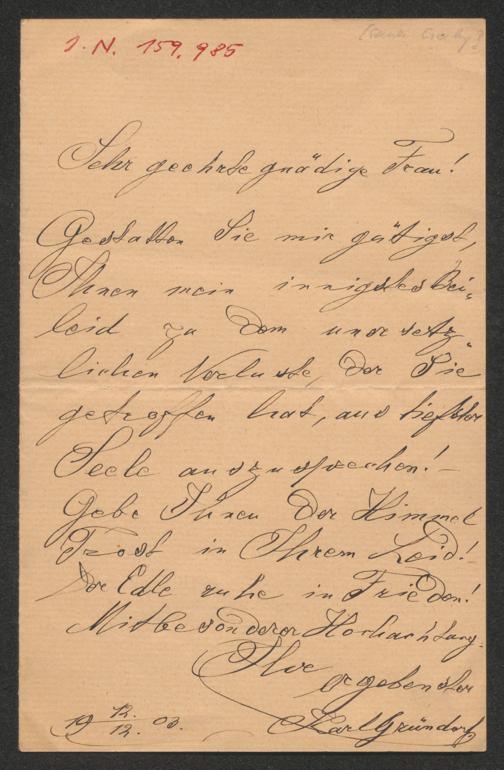 I. N. 159.985
Sehr geehrte gnädige Frau!
Gestatten Sie mir gütigst,
Ihnen mein innigstes Bei-
leid zu dem unersetz-
lichen Verluste, der Sie
getroffen hat, aus tiefster
Seele auszusprechen! –
Gebe Ihnen der Himmel
Trost in Ihrem Leid!
Der Edle ruhe in Frieden!
Mit besonderer Hochachtung
Ihr
ergebenster
Karl Gründorf
19 12./12. 03.